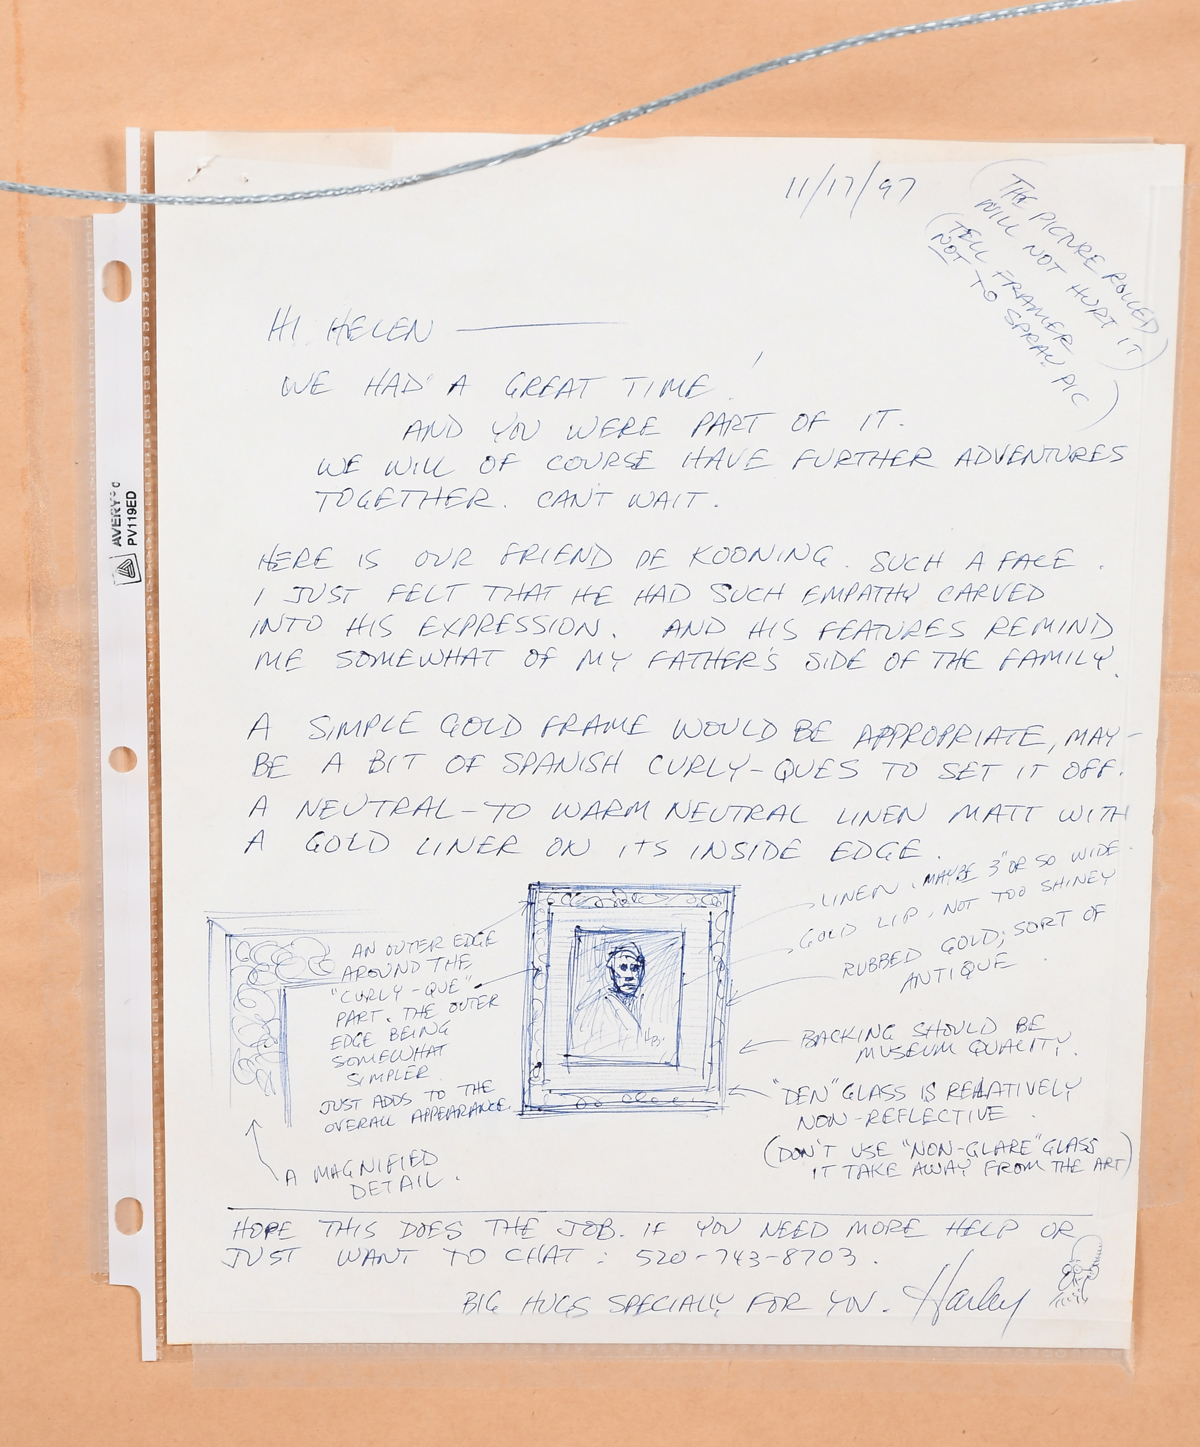 11/17/97
(THE PICTURE ROLLED)
WILL NOT HURT IT)
(TELL FRAMER
NOT TO
SPRAY PIC)
HI HELEN —
WE HAD A GREAT TIME!
AND YOU WERE PART OF IT.
WE WILL OF COURSE HAVE FURTHER ADVENTURES
TOGETHER. CAN'T WAIT.
AVERY
PV119ED
HERE IS OUR FRIEND DE KOONING. SUCH A FACE.
I JUST FELT THAT HE HAD SUCH EMPATHY CARVED
INTO HIS EXPRESSION. AND HIS FEATURES REMIND
ME SOMEWHAT OF MY FATHER'S SIDE OF THE FAMILY.
A SIMPLE GOLD FRAME WOULD BE APPROPRIATE, MAY-
BE A BIT OF SPANISH CURLY-QUES TO SET IT OFF.
A NEUTRAL-TO WARM NEUTRAL LINEN MATT WITH
A GOLD LINER ON ITS INSIDE EDGE.
LINEN, MAYBE 3" OR SO WIDE.
GOLD LIP, NOT TOO SHINEY
RUBBED GOLD; SORT OF
ANTIQUE.
BACKING SHOULD BE
MUSEUM QUALITY.
"DEN" GLASS IS RELATIVELY
NON-REFLECTIVE.
(DON'T USE "NON-GLARE" GLASS
IT TAKE AWAY FROM THE ART)
AN OUTER EDGE
AROUND THE
"CURLY-QUE"
PART. THE OUTER
EDGE BEING
SOMEWHAT
SIMPLER
JUST ADDS TO THE
OVERALL APPEARANCE.
A MAGNIFIED
DETAIL.
HOPE THIS DOES THE JOB. IF YOU NEED MORE HELP OR
JUST WANT TO CHAT: 520-743-8703.
BIG HUGS SPECIALLY FOR YOU. Harley